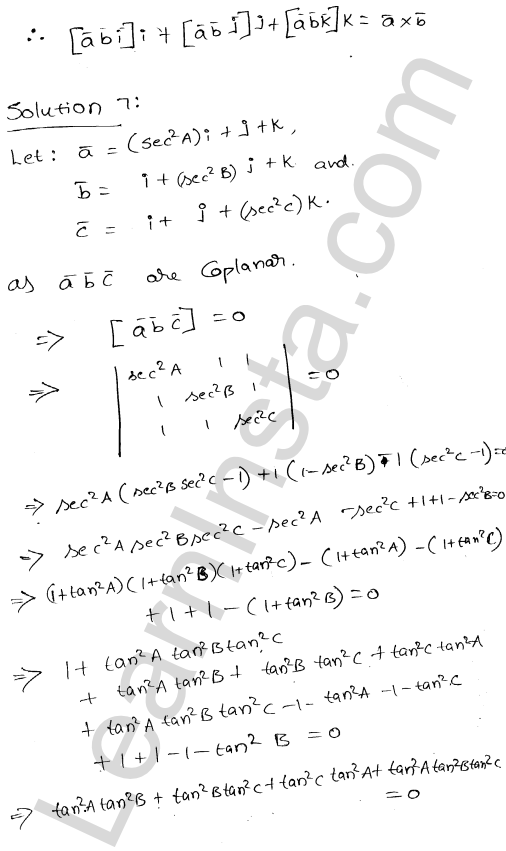 ∴ [ā b̄ i]i + [ā b̄ j]j + [ā b̄ k]k = ā × b̄
Solution 7:
Let: ā = (sec²A)i + j + k,
b̄ = i + (sec²B) j + k and.
c̄ = i + j + (sec²C) k.
as ā b̄ c̄ are Coplanar.
⇒ [ā b̄ c̄] = 0
⇒ | sec²A 1 1 |
| 1 sec²B 1 | = 0
| 1 1 sec²C |
⇒ sec²A (sec²B sec²C - 1) + 1 (1 - sec²B) - 1 (sec²C - 1) =
⇒ sec²A sec²B sec²C - sec²A - sec²C + 1 + 1 - sec²B = 0
⇒ (1+tan²A)(1+tan²B)(1+tan²C) - (1+tan²A) - (1+tan²C)
+ 1 + 1 - (1+tan²B) = 0
⇒ 1 + tan²A tan²B tan²C
+ tan²A tan²B + tan²B tan²C + tan²C tan²A
+ tan²A tan²B tan²C - 1 - tan²A - 1 - tan²C
+ 1 + 1 - 1 - tan² B = 0
⇒ tan²A tan²B + tan²B tan²C + tan²C tan²A + tan²A tan²B tan²C
= 0
LearnInsta.com